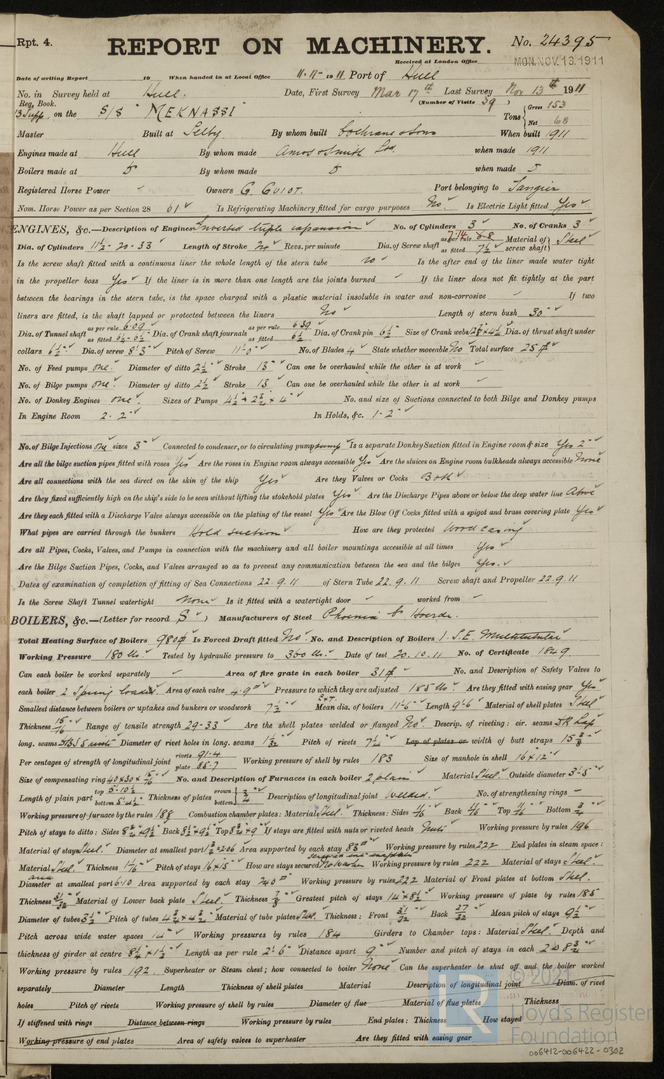 Rpt. 4.
REPORT ON MACHINERY.
No. 24395
Received at London Office MON. NOV. 13. 1911
Date of writing Report 19 When handed in at Local Office 11-11-1911 Port of Hull
No. in Survey held at Hull. Date, First Survey Mar 17th Last Survey Nov 13th 1911
Reg. Book. (Number of Visits 39)
3 Supp. on the S/S "MEKNASSI" Tons Gross 153 Net 68
Master Built at Selby By whom built Cochrane & Sons When built 1911
Engines made at Hull By whom made Amos & Smith Ltd. when made 1911
Boilers made at By whom made when made
Registered Horse Power Owners G. GUIOT. Port belonging to Tangier
Nom. Horse Power as per Section 28 61 Is Refrigerating Machinery fitted for cargo purposes No Is Electric Light fitted Yes
ENGINES, &c.—Description of Engines Inverted triple expansion No. of Cylinders 3 No. of Cranks 3
Dia. of Cylinders 11½-20-33 Length of Stroke Revs. per minute Dia. of Screw shaft as per rule as fitted 7½ Material of screw shaft Steel
Is the screw shaft fitted with a continuous liner the whole length of the stern tube no Is the after end of the liner made water tight
in the propeller boss Yes If the liner is in more than one length are the joints burned If the liner does not fit tightly at the part
between the bearings in the stern tube, is the space charged with a plastic material insoluble in water and non-corrosive If two
liners are fitted, is the shaft lapped or protected between the liners No Length of stern bush 30"
Dia. of Tunnel shaft as per rule 6.09 as fitted Dia. of Crank shaft journals as per rule 6.39 as fitted 6½ Dia. of Crank pin 6½ Size of Crank webs Dia. of thrust shaft under
collars 6½ Dia. of screw 8'-3 Pitch of Screw 11'-0" No. of Blades 4 State whether moveable No Total surface 25
No. of Feed pumps one Diameter of ditto 2½ Stroke 15 Can one be overhauled while the other is at work
No. of Bilge pumps one Diameter of ditto 2½ Stroke 15 Can one be overhauled while the other is at work
No. of Donkey Engines one Sizes of Pumps No. and size of Suctions connected to both Bilge and Donkey pumps
In Engine Room 2-2" In Holds, &c. 1-2"
No. of Bilge Injections one sizes 3" Connected to condenser, or to circulating pump pump Is a separate Donkey Suction fitted in Engine room & size Yes 2"
Are all the bilge suction pipes fitted with roses Yes Are the roses in Engine room always accessible Yes Are the sluices on Engine room bulkheads always accessible None
Are all connections with the sea direct on the skin of the ship Yes Are they Valves or Cocks Both
Are they fixed sufficiently high on the ship's side to be seen without lifting the stokehold plates Yes Are the Discharge Pipes above or below the deep water line Above
Are they each fitted with a Discharge Valve always accessible on the plating of the vessel Yes Are the Blow Off Cocks fitted with a spigot and brass covering plate Yes
What pipes are carried through the bunkers Hold suction How are they protected Wood casing
Are all Pipes, Cocks, Valves, and Pumps in connection with the machinery and all boiler mountings accessible at all times Yes
Are the Bilge Suction Pipes, Cocks, and Valves arranged so as to prevent any communication between the sea and the bilges Yes.
Dates of examination of completion of fitting of Sea Connections 22.9.11 of Stern Tube 22.9.11 Screw shaft and Propeller 22.9.11
Is the Screw Shaft Tunnel watertight None Is it fitted with a watertight door worked from
BOILERS, &c.—(Letter for record S) Manufacturers of Steel Phoenix Hoerde
Total Heating Surface of Boilers 980 Is Forced Draft fitted No No. and Description of Boilers 1 S.E. Multitubular
Working Pressure 180 lbs. Tested by hydraulic pressure to 360 lbs. Date of test 20.10.11 No. of Certificate 1849
Can each boiler be worked separately Area of fire grate in each boiler 31 No. and Description of Safety Valves to
each boiler 2 Spring loaded Area of each valve 4.9" Pressure to which they are adjusted 185 lbs Are they fitted with easing gear Yes
Smallest distance between boilers or uptakes and bunkers or woodwork 7½" Mean dia. of boilers 11'-6" Length 9'-6 Material of shell plates Steel
Thickness 15/16 Range of tensile strength 29-33 Are the shell plates welded or flanged No Descrip. of riveting: cir. seams Lap
long. seams Diameter of rivet holes in long. seams 1 1/32 Pitch of rivets 7½ Lap of plates or width of butt straps 15
Per centages of strength of longitudinal joint rivets 91.4 plate Working pressure of shell by rules 183 Size of manhole in shell 16"x12"
Size of compensating ring No. and Description of Furnaces in each boiler 2 plain Material Steel Outside diameter 3'-5"
Length of plain part top bottom Thickness of plates crown bottom ¾ Description of longitudinal joint welded. No. of strengthening rings
Working pressure of furnace by the rules 188 Combustion chamber plates: Material Steel. Thickness: Sides Back Top Bottom
Pitch of stays to ditto: Sides Back Top If stays are fitted with nuts or riveted heads Nuts Working pressure by rules 196
Material of stays Steel. Diameter at smallest part Area supported by each stay Working pressure by rules 222 End plates in steam space:
Material Steel Thickness 1 1/16 Pitch of stays 16x15 How are stays secured Working pressure by rules 222 Material of stays Steel
Diameter at smallest part 6.10 Area supported by each stay 240 Working pressure by rules 222 Material of Front plates at bottom Steel.
Thickness Material of Lower back plate Steel Thickness Greatest pitch of stays Working pressure of plate by rules 185
Diameter of tubes 3½ Pitch of tubes Material of tube plates Steel. Thickness: Front Back Mean pitch of stays 9½
Pitch across wide water spaces 14 Working pressures by rules 184 Girders to Chamber tops: Material Steel. Depth and
thickness of girder at centre Length as per rule 2'-6" Distance apart 9" Number and pitch of stays in each
Working pressure by rules 192 Superheater or Steam chest; how connected to boiler None Can the superheater be shut off and the boiler worked
separately Diameter Length Thickness of shell plates Material Description of longitudinal joint Diam. of rivet
holes Pitch of rivets Working pressure of shell by rules Diameter of flue Material of flue plates Thickness
If stiffened with rings Distance between rings Working pressure by rules End plates: Thickness How stayed
Working pressure of end plates Area of safety valves to superheater Are they fitted with easing gear
© 2021
LR
Lloyd's Register
Foundation
006412-006422-0302